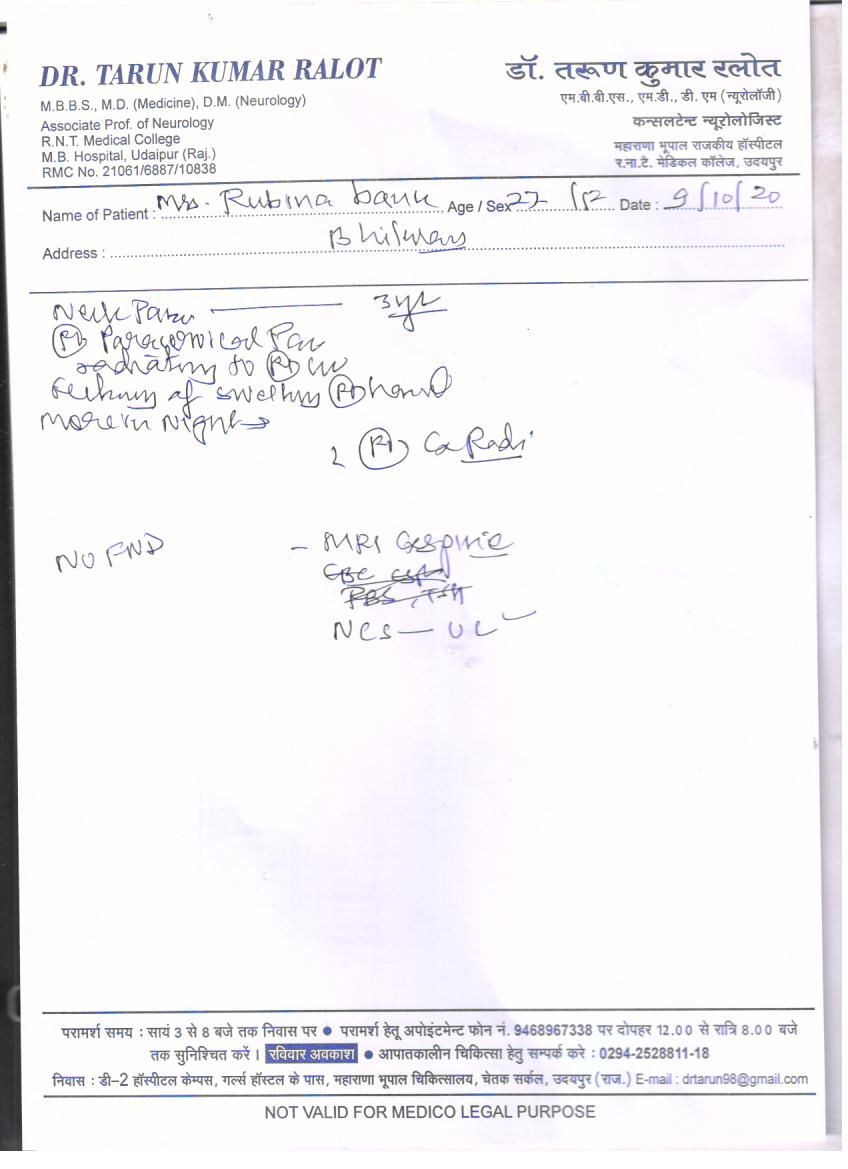 DR. TARUN KUMAR RALOT
M.B.B.S., M.D. (Medicine), D.M. (Neurology)
Associate Prof. of Neurology
R.N.T. Medical College
M.B. Hospital, Udaipur (Raj.)
RMC No. 21061/6887/10838
डॉ. तरूण कुमार रलोत
एम.बी.बी.एस., एम.डी., डी. एम (न्यूरोलॉजी)
कन्सलटेन्ट न्यूरोलोजिस्ट
महाराणा भूपाल राजकीय हॉस्पीटल
र.ना.टै. मेडिकल कॉलेज, उदयपुर
Name of Patient : Mrs. Rubina Age / Sex 27 Date : 9/10/20
Address :
Neck Pain 3yr
Rt
radiating to Rt
of swelling Rt hand
More in Night
Rt
NO FND - MRI
CBC
FBS, TSH
NCS - UL
परामर्श समय : सायं 3 से 8 बजे तक निवास पर ● परामर्श हेतू अपोइंटमेन्ट फोन नं. 9468967338 पर दोपहर 12.00 से रात्रि 8.00 बजे
तक सुनिश्चित करें । रविवार अवकाश ● आपातकालीन चिकित्सा हेतु सम्पर्क करे : 0294-2528811-18
निवास : डी-2 हॉस्पीटल केम्पस, गर्ल्स हॉस्टल के पास, महाराणा भूपाल चिकित्सालय, चेतक सर्कल, उदयपुर (राज.) E-mail : drtarun98@gmail.com
NOT VALID FOR MEDICO LEGAL PURPOSE